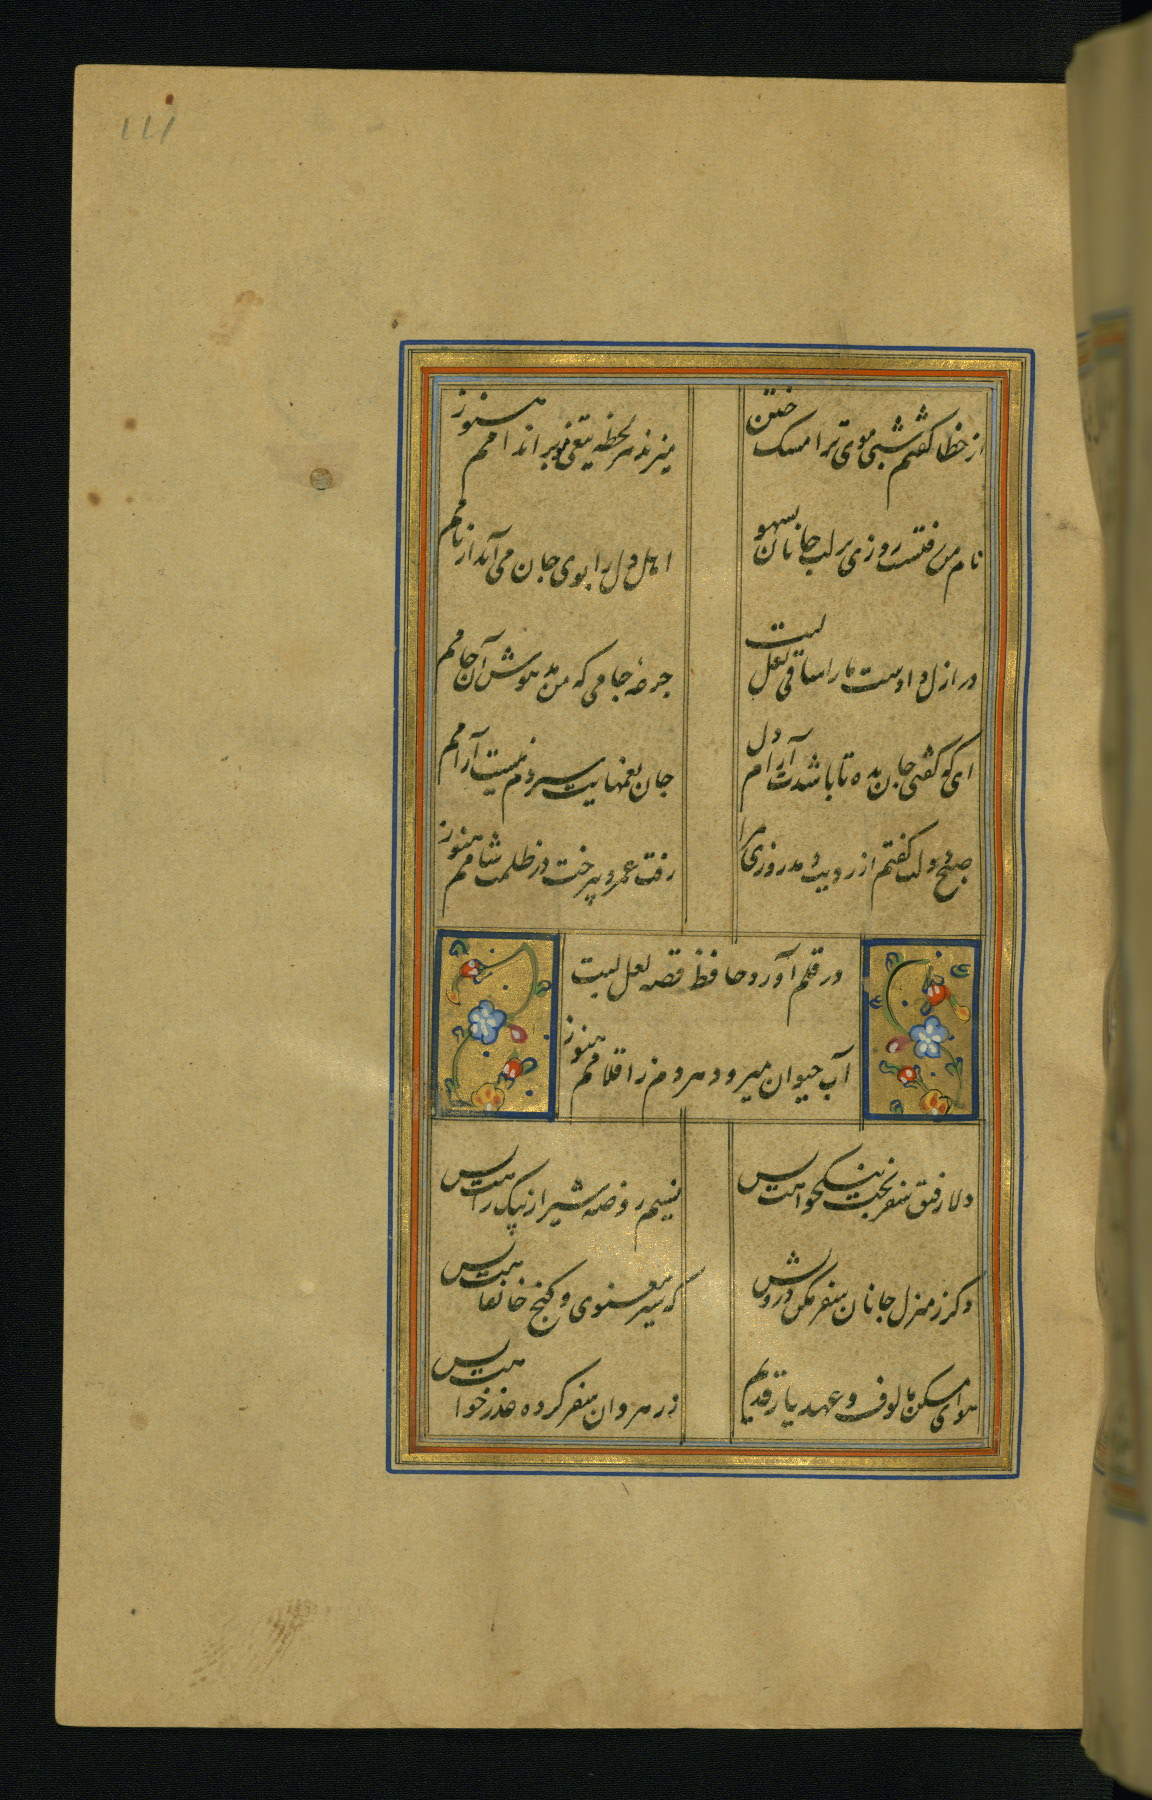 ۱۱۱
از خطا گفتم شبی موی ترا مسک ختن
میزند هر لحظه تیغی مو بر اندامم هنوز
نام من رفتست روزی بر لب جانان بسهو
اهل دل را بوی جان می آید از نامم
در ازل دادست ما را ساقی لعل لبت
جرعهٔ جامی که من مدهوش آن جامم
ای که گفتی جان بده تا باشدت آرام دل
جان بغمهایت سپردم نیست آرامم
صبح دولت گفتم از رویت دمد روزی مرا
رفت عمر و بیرخت در ظلمت شامم هنوز
در قلم آورد حافظ قصه لعل لبت
آب حیوان میرود هر دم ز اقلامم هنوز
دلا رفیق سفر بخت نیکخواهت بس
نسیم روضه شیراز پیک راهت بس
دگر ز منزل جانان سفر مکن درویش
که سیر معنوی و کنج خانقاهت بس
هوای مسکن مالوف و عهد یار قدیم
ز رهروان سفر کرده عذر خواهت بس